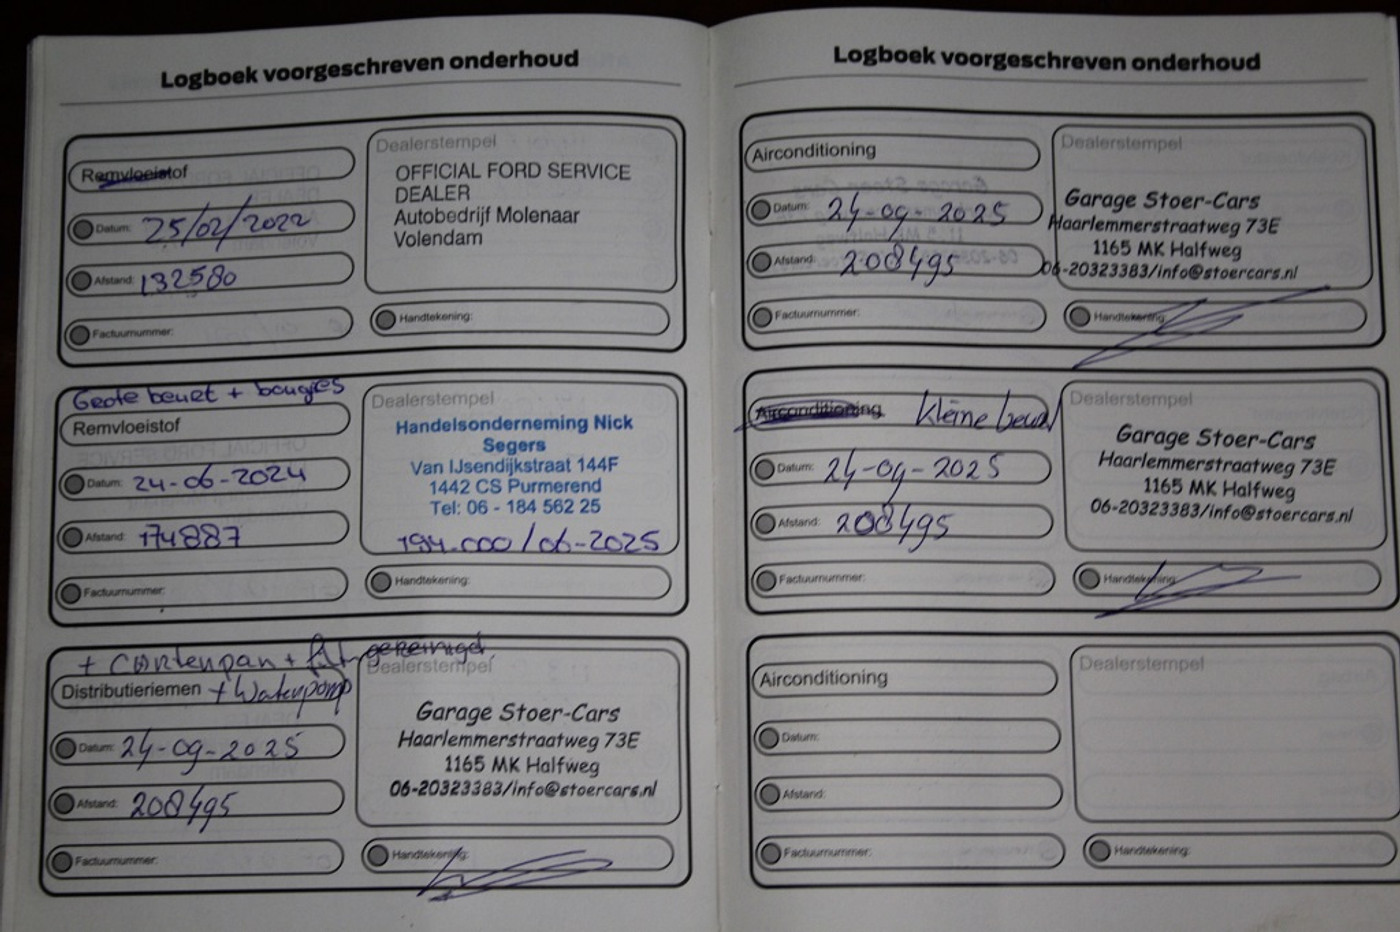 Logboek voorgeschreven onderhoud
Remvloeistof
Datum: 25/02/2022
Afstand: 132580
Factuurnummer:
Dealerstempel
OFFICIAL FORD SERVICE
DEALER
Autobedrijf Molenaar
Volendam
Handtekening:
Grote beurt + bougies
Remvloeistof
Datum: 24-06-2024
Afstand: 174887
Factuurnummer:
Dealerstempel
Handelsonderneming Nick
Segers
Van IJsendijkstraat 144F
1442 CS Purmerend
Tel: 06 - 184 562 25
194.000/06-2025
Handtekening:
+ Carterpan + gereinigd
Distributieriemen + Waterpomp
Datum: 24-09-2025
Afstand: 208495
Factuurnummer:
Dealerstempel
Garage Stoer-Cars
Haarlemmerstraatweg 73E
1165 MK Halfweg
06-20323383/info@stoercars.nl
Handtekening:
Logboek voorgeschreven onderhoud
Airconditioning
Datum: 24-09-2025
Afstand: 208495
Factuurnummer:
Dealerstempel
Garage Stoer-Cars
Haarlemmerstraatweg 73E
1165 MK Halfweg
06-20323383/info@stoercars.nl
Handtekening:
Airconditioning kleine beurt
Datum: 24-09-2025
Afstand: 208495
Factuurnummer:
Dealerstempel
Garage Stoer-Cars
Haarlemmerstraatweg 73E
1165 MK Halfweg
06-20323383/info@stoercars.nl
Handtekening:
Airconditioning
Datum:
Afstand:
Factuurnummer:
Dealerstempel
Handtekening: